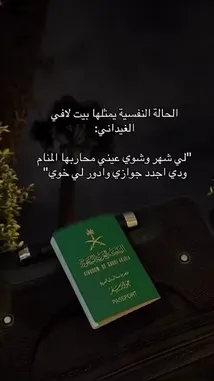 الحالة النفسية يمثلها بيت لافي
الغيداني:
"لي شهر وشوي عيني محاربها المنام
ودي اجدد جوازي وادور لي خوي"
المملكة العربية السعودية
KINGDOM OF SAUDI ARABIA
PASSPORT